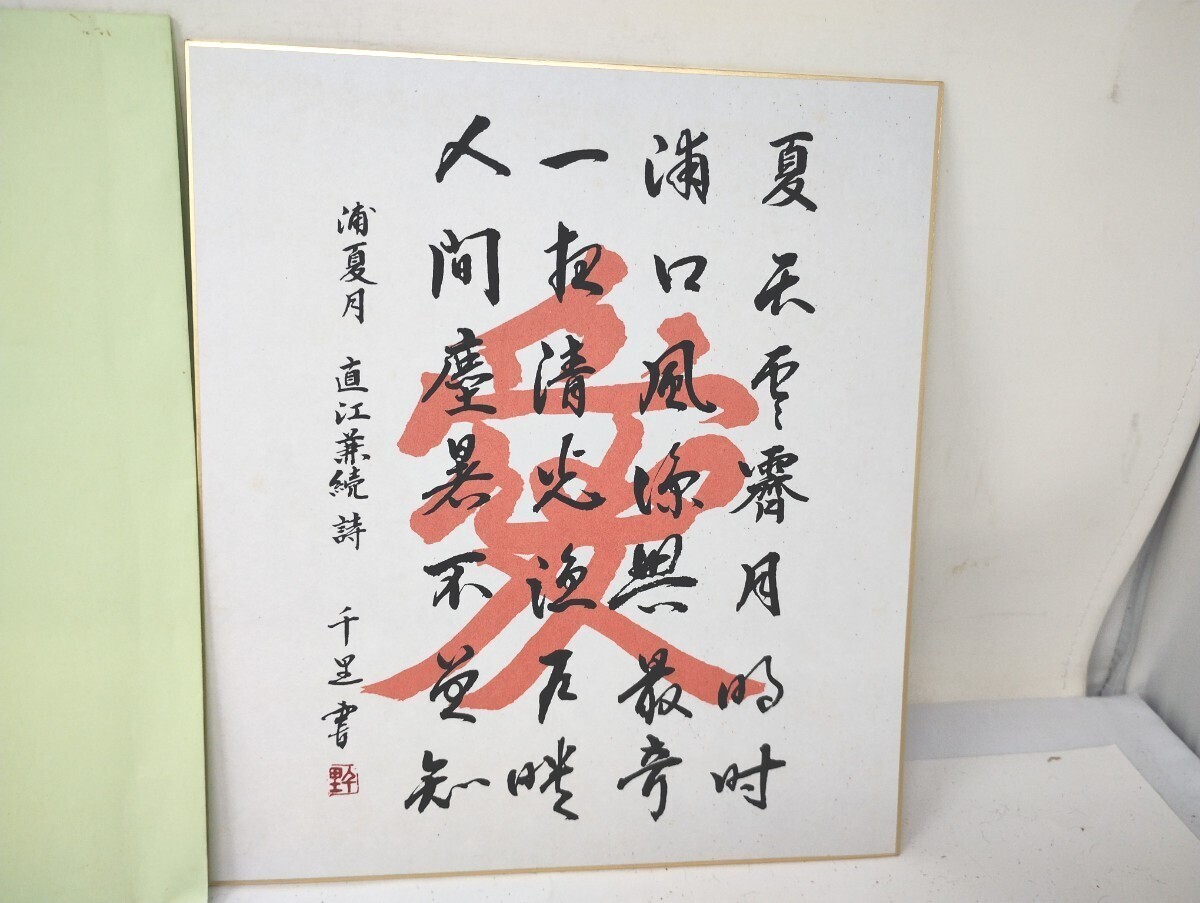 愛
夏天雲霽月明时
浦口風涼興最奇
一清光漁
人間塵暑不曽知
浦夏月 直江兼続詩 千里書